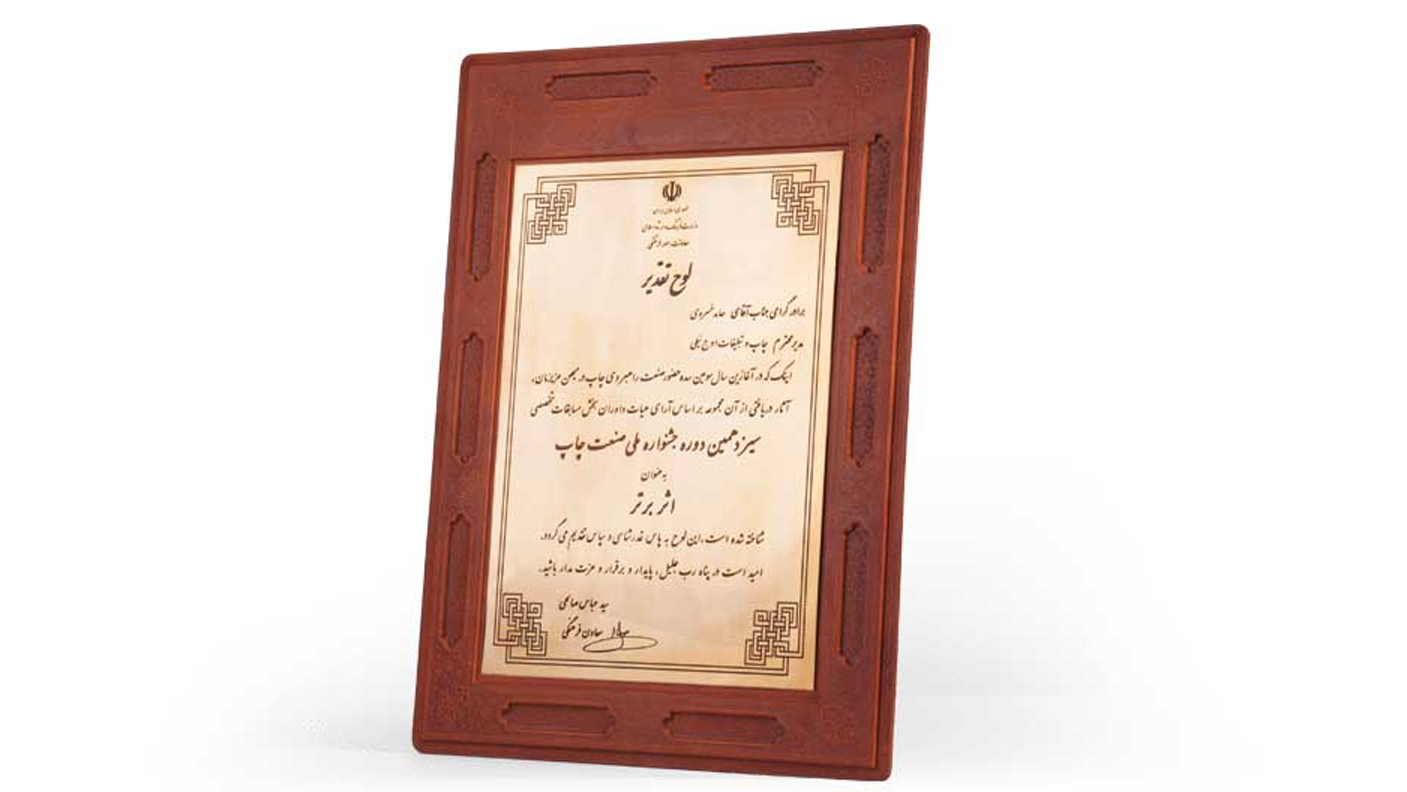 جمهوری اسلامی ایران
وزارت فرهنگ و ارشاد اسلامی
معاونت امور فرهنگی
لوح تقدیر
برادر گرامی جناب آقای حامد خسروی
مدیر محترم چاپ و تبلیغات اوج نیلی
اینک که در آغازین سال سومین سده حضور صنعت راهبردی چاپ در میهن عزیزمان،
آثار دریافتی از آن مجموعه بر اساس آرای هیات داوران بخش مسابقات تخصصی
سیزدهمین دوره جشنواره ملی صنعت چاپ
به عنوان
اثر برتر
شناخته شده است، این لوح به پاس قدرشناسی و سپاس تقدیم می گردد.
امید است در پناه رب جلیل، پایدار و برقرار و عزت مدار باشید.
سید عباس صالحی
معاون فرهنگی